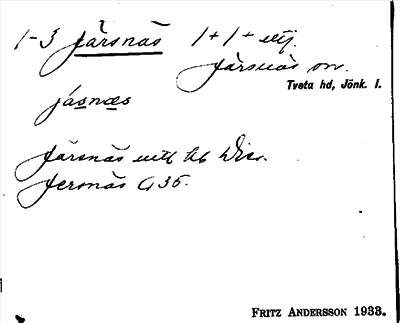 1-3 Järsnäs 1+1+ utj.
Järsnäs sn.
Tveta hd, Jönk. l.
jásnæs
Järsnäs
Jersnäs G 35.
FRITZ ANDERSSON 1933.